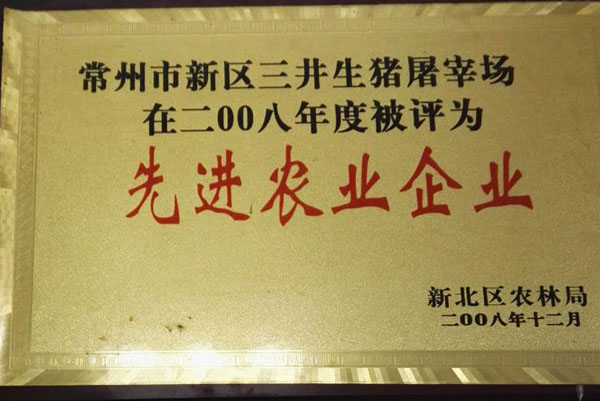 常州市新区三井生猪屠宰场
在二00八年度被评为
先进农业企业
新北区农林局
二00八年十二月